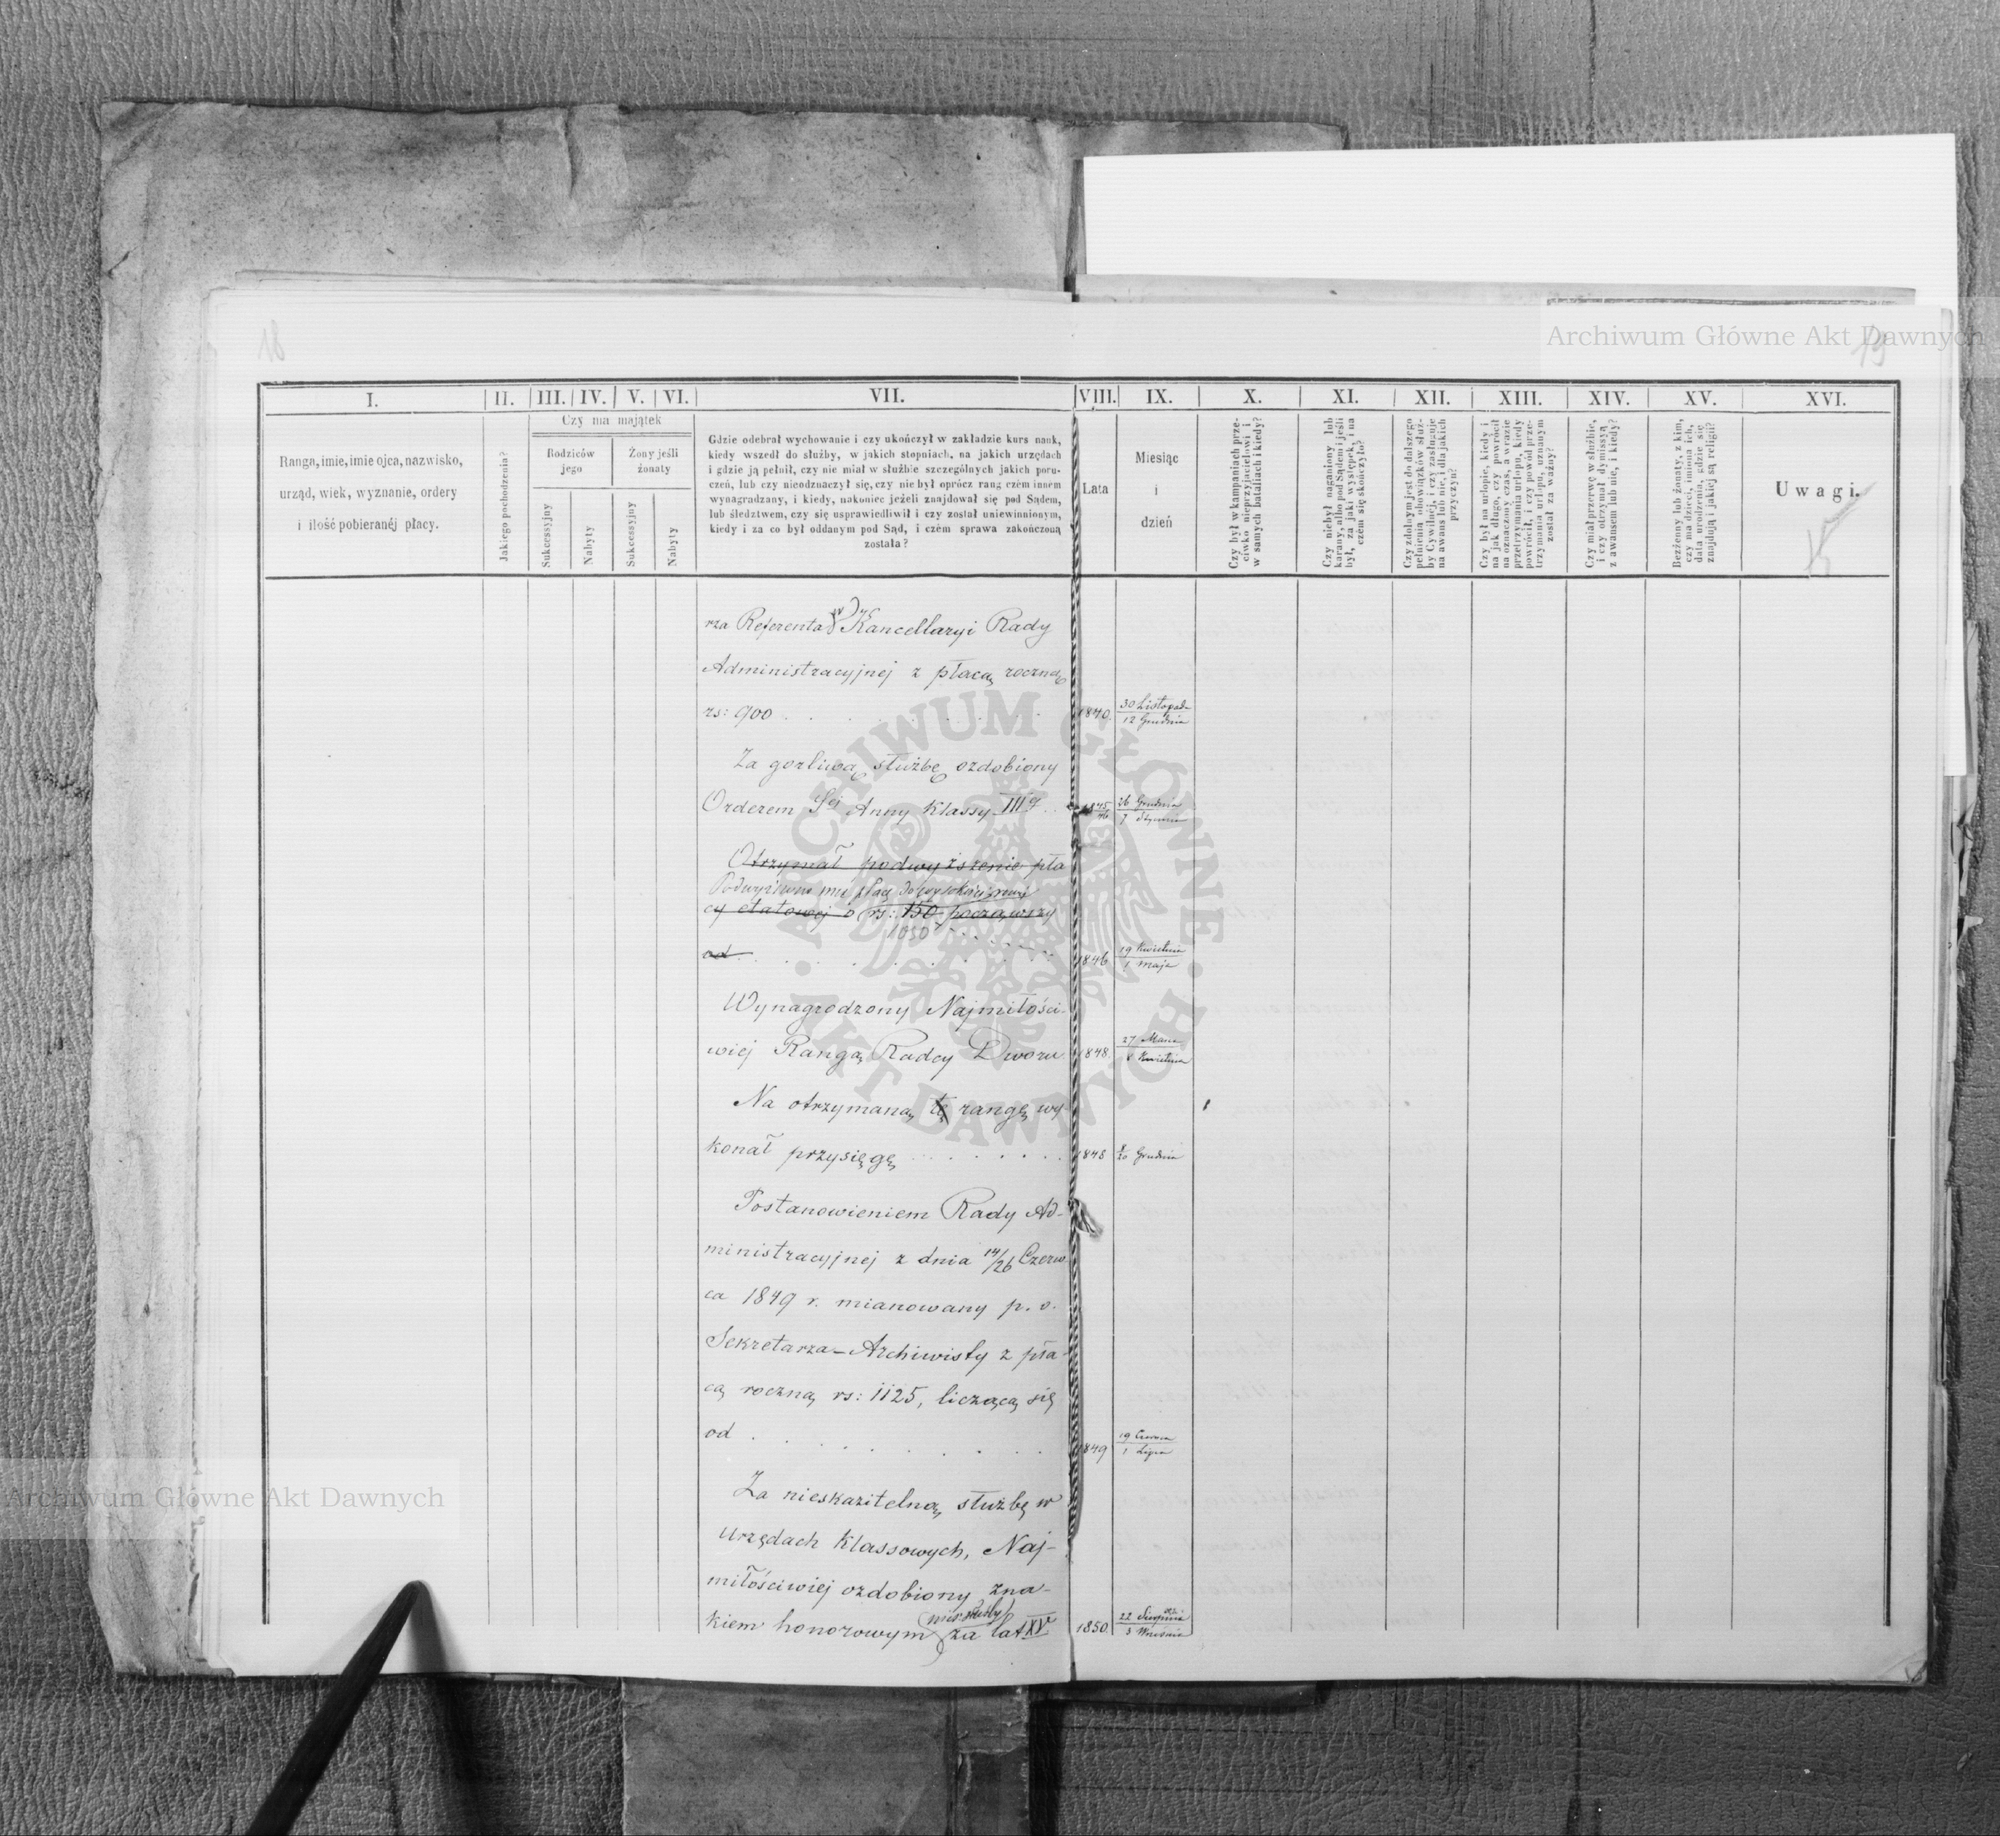 18
19
Archiwum Główne Akt Dawnych
I.
II.
III.
IV.
V.
VI.
VII.
VIII.
IX.
X.
XI.
XII.
XIII.
XIV.
XV.
XVI.
Ranga, imie, imie ojca, nazwisko,
urząd, wiek, wyznanie, ordery
i ilość pobieranéj płacy.
Jakiego pochodzenia?
Czy ma majątek
Rodziców
jego
Żony jeśli
żonaty
Sukcessyjny
Nabyty
Sukcessyjny
Nabyty
Gdzie odebrał wychowanie i czy ukończył w zakładzie kurs nauk,
kiedy wszedł do służby, w jakich stopniach, na jakich urzędach
i gdzie ją pełnił, czy nie miał w służbie szczególnych jakich poru-
czeń, lub czy nieodznaczył się, czy nie był oprócz rang czém innem
wynagradzany, i kiedy, nakoniec jeżeli znajdował się pod Sądem,
lub śledztwem, czy się usprawiedliwił i czy został uniewinnionym,
kiedy i za co był oddanym pod Sąd, i czém sprawa zakończoną
została?
Lata
Miesiąc
i
dzień
Czy był w kampaniach prze-
ciwko nieprzyjacielowi i
w samych bataliach i kiedy?
Czy niebył naganiony lub
karany, albo pod Sądem i jeśli
był, za jaki występek, i na
czém się skończyło?
Czy zdolnym jest do dalszego
pełnienia obowiązków służ-
by Cywilnéj, i czy zasługuje
na awans lub nie, i dla jakich
przyczyn?
Czy był na urlopie, kiedy i
na jak długo, czy powrócił
na oznaczony czas, a w razie
przetrzymania urlopu, kiedy
powrócił, i czy powód prze-
trzymania urlopu, uznanym
został za ważny?
Czy miał przerwę w służbie,
i czy otrzymał dymissyą
z awansem lub nie, i kiedy?
Bezżenny lub żonaty, z kim,
czy ma dzieci, imiona ich,
data urodzenia, gdzie się
znajdują i jakiej są religii?
Uwagi.
rza Referenta w Kancellaryi Rady
Administracyjnej z płacą roczną
rs: 900 1840. 30 Listopada
12 Grudnia
Za gorliwą służbę ozdobiony
Orderem Sej Anny Klassy III 1845/46 26 Grudnia
7 Stycznia
Otrzymał podwyższenie pła
Podwyższono mu płacę do wysokości
cy etatowej o rs: 150 począwszy
1050
od 1846. 19 Kwietnia
1 Maja
Wynagrodzony Najmiłości-
wiej Rangą Radcy Dworu 1848. 27 Marca
8 Kwietnia
Na otrzymaną tę rangę wy-
konał przysięgę 1848 8/20 Grudnia
Postanowieniem Rady Ad-
ministracyjnej z dnia 14/26 Czerw
ca 1849 r. mianowany p. o.
Sekretarza-Archiwisty z pła-
cą roczną rs: 1125, liczącą się
od 1849 19 Czerwca
1 Lipca
Za nieskazitelną służbę w
Urzędach Klassowych, Naj-
miłościwiej ozdobiony zna-
kiem honorowym za lat XV 1850. 22 Sierpnia
3 Września
ARCHIWUM GŁÓWNE AKT DAWNYCH
Archiwum Główne Akt Dawnych